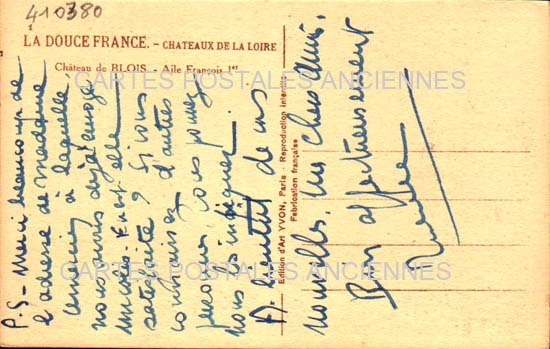 410380
LA DOUCE FRANCE. - CHATEAUX DE LA LOIRE
Château de BLOIS. - Aile François 1er
CARTES POSTALES ANCIENNES
CARTES POSTALES ANCIENNES
Edition d'Art YVON, Paris - Reproduction interdite
Fabrication française
P.S - Merci beaucoup de
l'adresse de madame
à laquelle
nous avons déjà envoyé
En est-elle
satisfaite? Si vous
connaissez d'autres
vous pouvez
nous les indiquer!
A bientôt de vos
nouvelles, mes chers amis.
Bien affectueusement